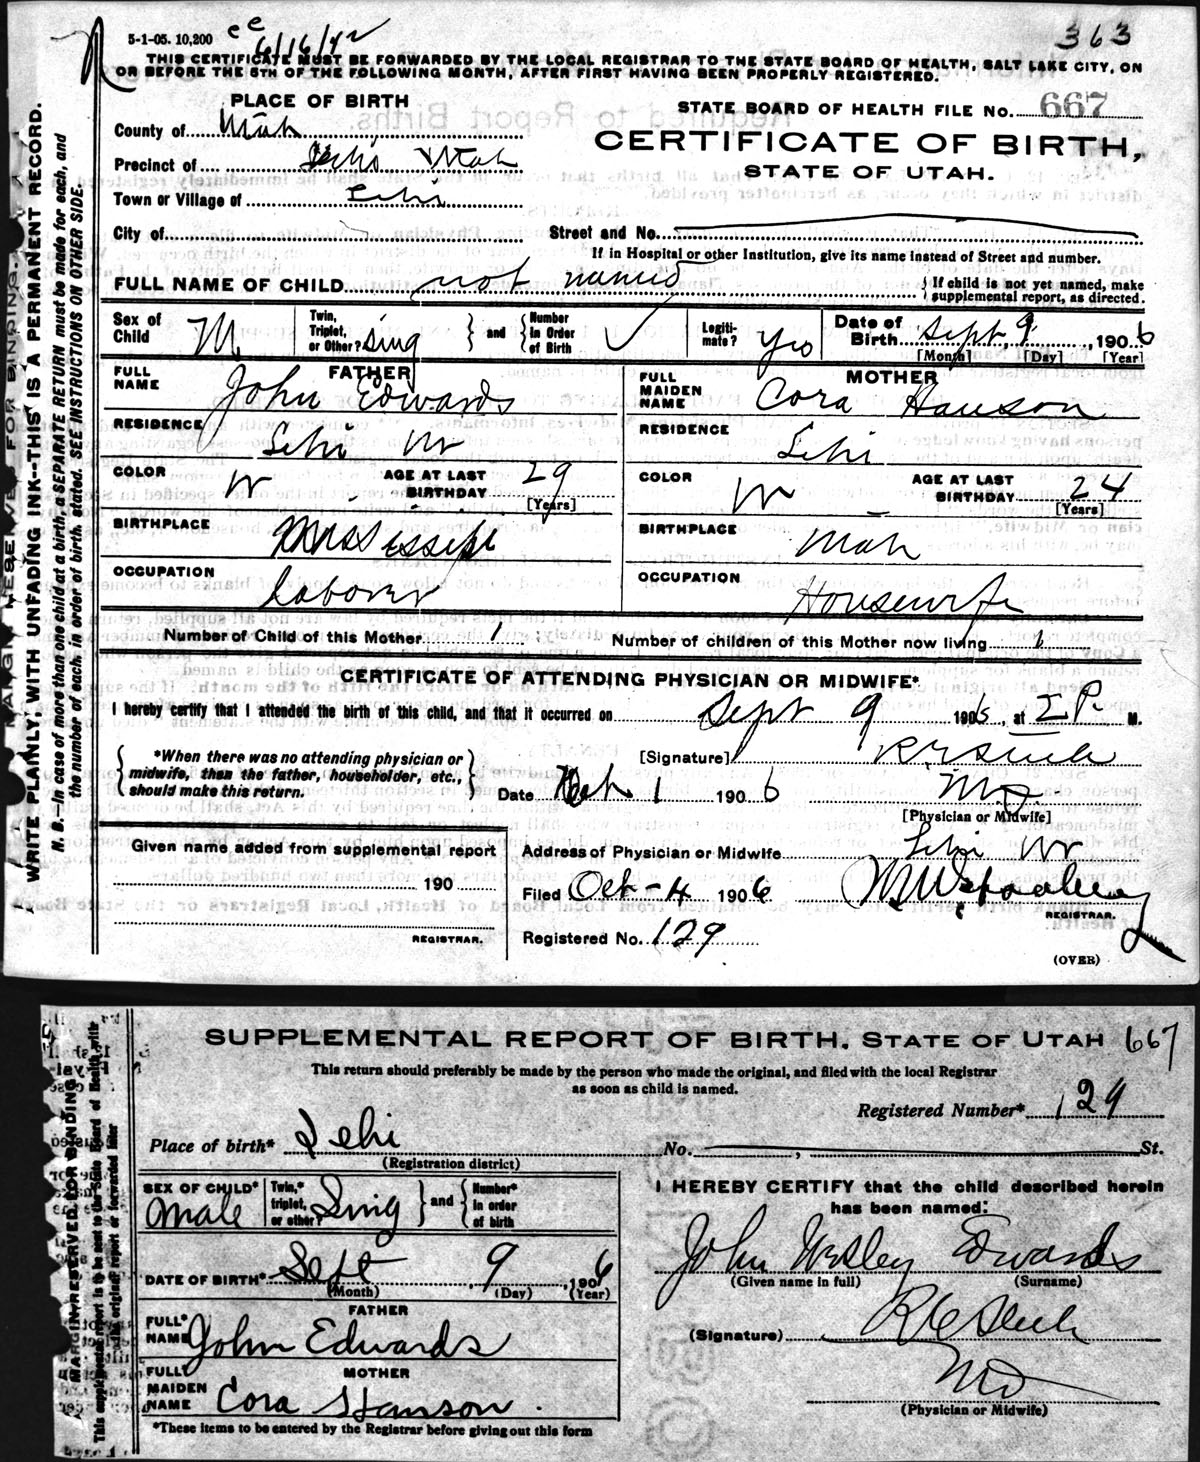 5-1-05. 10,200
6/16/42
363
THIS CERTIFICATE MUST BE FORWARDED BY THE LOCAL REGISTRAR TO THE STATE BOARD OF HEALTH, SALT LAKE CITY, ON
OR BEFORE THE 5TH OF THE FOLLOWING MONTH, AFTER FIRST HAVING BEEN PROPERLY REGISTERED.
PLACE OF BIRTH
STATE BOARD OF HEALTH FILE No. 667
County of Utah
CERTIFICATE OF BIRTH,
Precinct of Lehi Utah
STATE OF UTAH.
Town or Village of Lehi
City of
Street and No.
If in Hospital or other Institution, give its name instead of Street and number.
FULL NAME OF CHILD not named
{ If child is not yet named, make
supplemental report, as directed.
Sex of Child M
Twin, Triplet, or Other? Sing } and { Number in Order of Birth ✓
Legiti-mate? Yes
Date of Birth Sept, 9, 1906
[Month] [Day] [Year]
FATHER
FULL NAME John Edwards
MOTHER
FULL MAIDEN NAME Cora Hanson
RESIDENCE Lehi
RESIDENCE Lehi
COLOR W AGE AT LAST BIRTHDAY 29
[Years]
COLOR W AGE AT LAST BIRTHDAY 24
[Years]
BIRTHPLACE Mississippi
BIRTHPLACE Utah
OCCUPATION laborer
OCCUPATION Housewife
Number of Child of this Mother 1
Number of children of this Mother now living 1
CERTIFICATE OF ATTENDING PHYSICIAN OR MIDWIFE*
I hereby certify that I attended the birth of this child, and that it occurred on Sept 9 1906, at P. M.
{ *When there was no attending physician or
midwife, than the father, householder, etc.,
should make this return. }
[Signature]
MD.
Date Oct 1 1906
[Physician or Midwife]
Given name added from supplemental report
190
REGISTRAR.
Address of Physician or Midwife Lehi
Filed Oct-4 1906
REGISTRAR.
Registered No. 129
(OVER)
MARGIN RESERVED FOR BINDING.
WRITE PLAINLY, WITH UNFADING INK--THIS IS A PERMANENT RECORD.
N. B.—In case of more than one child at a birth, a SEPARATE RETURN must be made for each, and
the number of each, in order of birth, stated. SEE INSTRUCTIONS ON OTHER SIDE.
SUPPLEMENTAL REPORT OF BIRTH, STATE OF UTAH 667
This return should preferably be made by the person who made the original, and filed with the local Registrar
as soon as child is named.
Registered Number* 129
Place of birth* Lehi No. , St.
(Registration district)
SEX OF CHILD* Male
Twin,* triplet, or other? Sing } and { Number* in order of birth
I HEREBY CERTIFY that the child described herein
has been named:
John Wesley Edwards
(Given name in full) (Surname)
DATE OF BIRTH* Sept 9, 1906
(Month) (Day) (Year)
FATHER
FULL* NAME John Edwards
(Signature)
MD
(Physician or Midwife)
MOTHER
FULL* MAIDEN NAME Cora Hanson.
*These items to be entered by the Registrar before giving out this form
MARGIN RESERVED FOR BINDING
This supplemental report is to be sent to the State Board of Health with
the original report or forwarded after